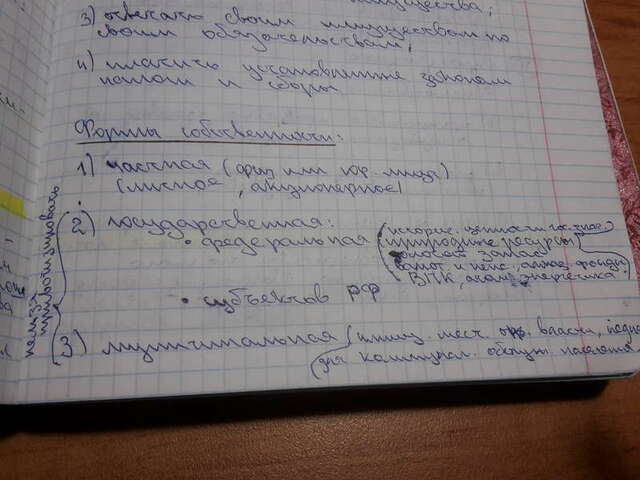 3) отвечать своим имуществом по
своим обязательствам;
4) платить установленные законом
налоги и сборы
Формы собственности:
1) частная (физ или юр. лица)
(личная, акционерное)
2) государственная:
• федеральная
(историч. ценности гос. знач.
природные ресурсы
запас
и пенс. фонды
ВПК, энергетика
• субъектов РФ
3) муниципальная
(имущ. мест. орг. власти,
для коммунал. обслуж.
нельзя
приватизировать